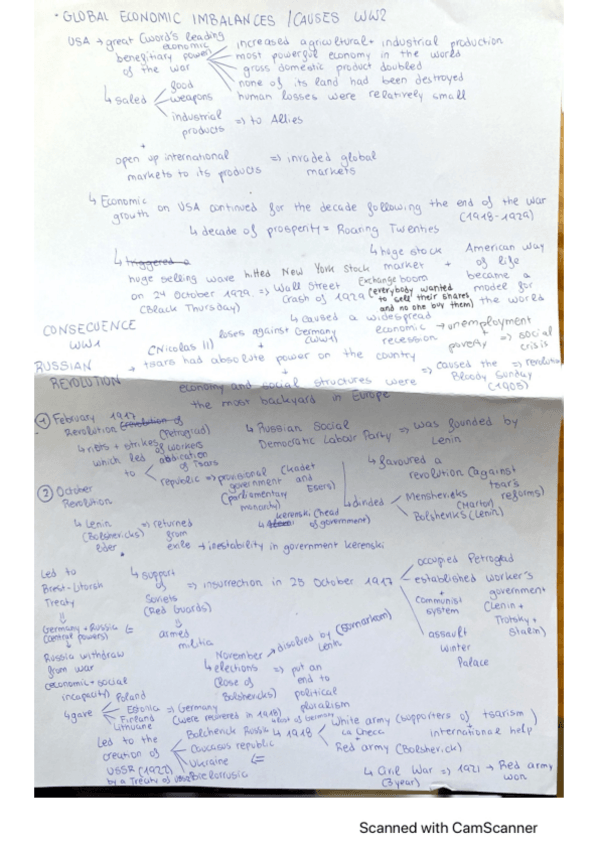 • GLOBAL ECONOMIC IMBALANCES / CAUSES WW2
USA → great (word's leading economic
benefitiary power
of the war
increased agricultural + industrial production
most powerful economy in the world
gross domestic product doubled
none of its land had been destroyed
human losses were relatively small
↳ saled
good
weapons
industrial products => to Allies
+
open up international => invaded global
markets to its products markets
↳ Economic growth on USA continued for the decade following the end of the war
(1918-1929)
↳ decade of prosperity = Roaring Twenties
↳ triggered a
huge selling wave hitted New York Stock Exchange
on 24 October 1929 => Wall Street
(Black Thursday) Crash of 1929
(everybody wanted
to sell their shares
and no one buy them)
↳ huge stock
market + boom
American way
of life
became a
model for
the world
↳ caused a widespread
economic recession → unemployment
poverty => social crisis
CONSECUENCE
WW1
RUSSIAN
REVOLUTION
(Nicolas II) loses against Germany (WW1)
→ tsars had absolute power on the country
+
economy and social structures were
the most backyard in Europe
=> caused the => revolution
Bloody Sunday
(1905)
① February 1917
Revolution (Petrograd)
↳ riots + strikes of workers
which led of abdication
to of Tsars
republic => provisional (kadet
government and
(parliamentary Esers)
monarchy)
↳ Russian Social
Democratic Labour Party => was founded by
Lenin
↳ favoured a
revolution (against
tsar's
reforms)
↳ divided
Mensheviks (Martov)
Bolsheviks (Lenin)
② October
Revolution
↳ Lenin => returned
(Bolshevicks) from
lider exile → inestability in government kerenski
↳ kerenski (head
of government)
↳ support
of
Soviets
(Red Guards)
⇓
armed
militia
=> insurrection in 25 October 1917
occupied Petrograd
established worker's
government
(Lenin +
Trotsky +
Stalin)
+
communist
system
assault
Winter
Palace
Led to
Brest-Litorsk
Treaty
⇓
Germany + Russia <=
(central powers)
Russia withdraw
from war
(economic + social
incapacity)
↳ gave
Poland
Estonia => Germany
Finland (were recovered in 1918)
Lithuane
November → disolved by Lenin
↳ elections => put an
(lose of end to
Bolshevicks) political
pluralism
Led to the
creation of
USSR (1922)
by a Treaty of USSR
Bolchevick Russia
Caucasus republic
Ukraine <=
Bielorrusia
↳ 1918
White army (supporters of tsarism)
+
international help
Red army (Bolshevick)
↳ Civil War => 1921 → Red army
(3 year) won
Scanned with CamScanner